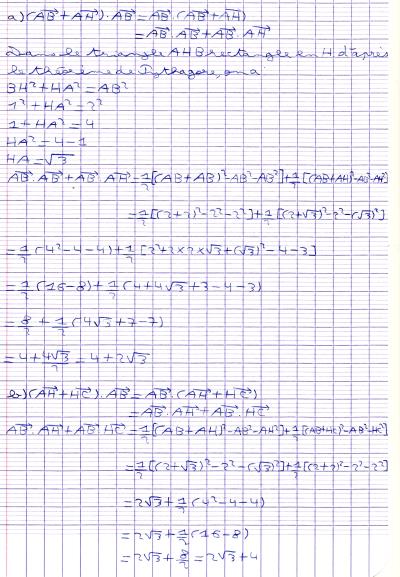 a) (AB⃗+AH⃗)·AB⃗=AB⃗·(AB⃗+AH⃗)
=AB⃗·AB⃗+AB⃗·AH⃗
Dans le triangle AHB rectangle en H d'après
le théorème de Pythagore, on a:
BH²+HA²=AB²
1²+HA²=2²
1+HA²=4
HA²=4-1
HA=√3
AB⃗·AB⃗+AB⃗·AH⃗=1/2[(AB+AB)²-AB²-AB²]+1/2[(AB+AH)²-AB²-AH²]
=1/2[(2+2)²-2²-2²]+1/2[(2+√3)²-2²-(√3)²]
=1/2(4²-4-4)+1/2[2²+2×2×√3+(√3)²-4-3]
=1/2(16-8)+1/2(4+4√3+3-4-3)
=8/2+1/2(4√3+7-7)
=4+4√3/2=4+2√3
b) (AH⃗+HC⃗)·AB⃗=AB⃗·(AH⃗+HC⃗)
=AB⃗·AH⃗+AB⃗·HC⃗
AB⃗·AH⃗+AB⃗·HC⃗=1/2[(AB+AH)²-AB²-AH²]+1/2[(AB+HC)²-AB²-HC²]
=1/2[(2+√3)²-2²-(√3)²]+1/2[(2+2)²-2²-2²]
=2√3+1/2(4²-4-4)
=2√3+1/2(16-8)
=2√3+8/2=2√3+4